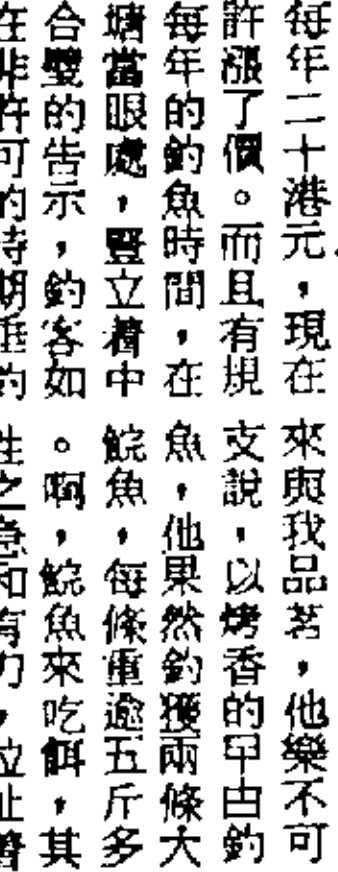 每年二十港元，現在
許漲了價。而且有規
每年的釣魚時間，在
塘當眼處，豎立着中
合璧的告示，釣客如
在非許可的時期垂釣
來與我品茗，他樂不可
支說，以烤香的曱甴釣
魚，他果然釣獲兩條大
鯇魚，每條重逾五斤多
。啊，鯇魚來吃餌，其
性之急和有力，